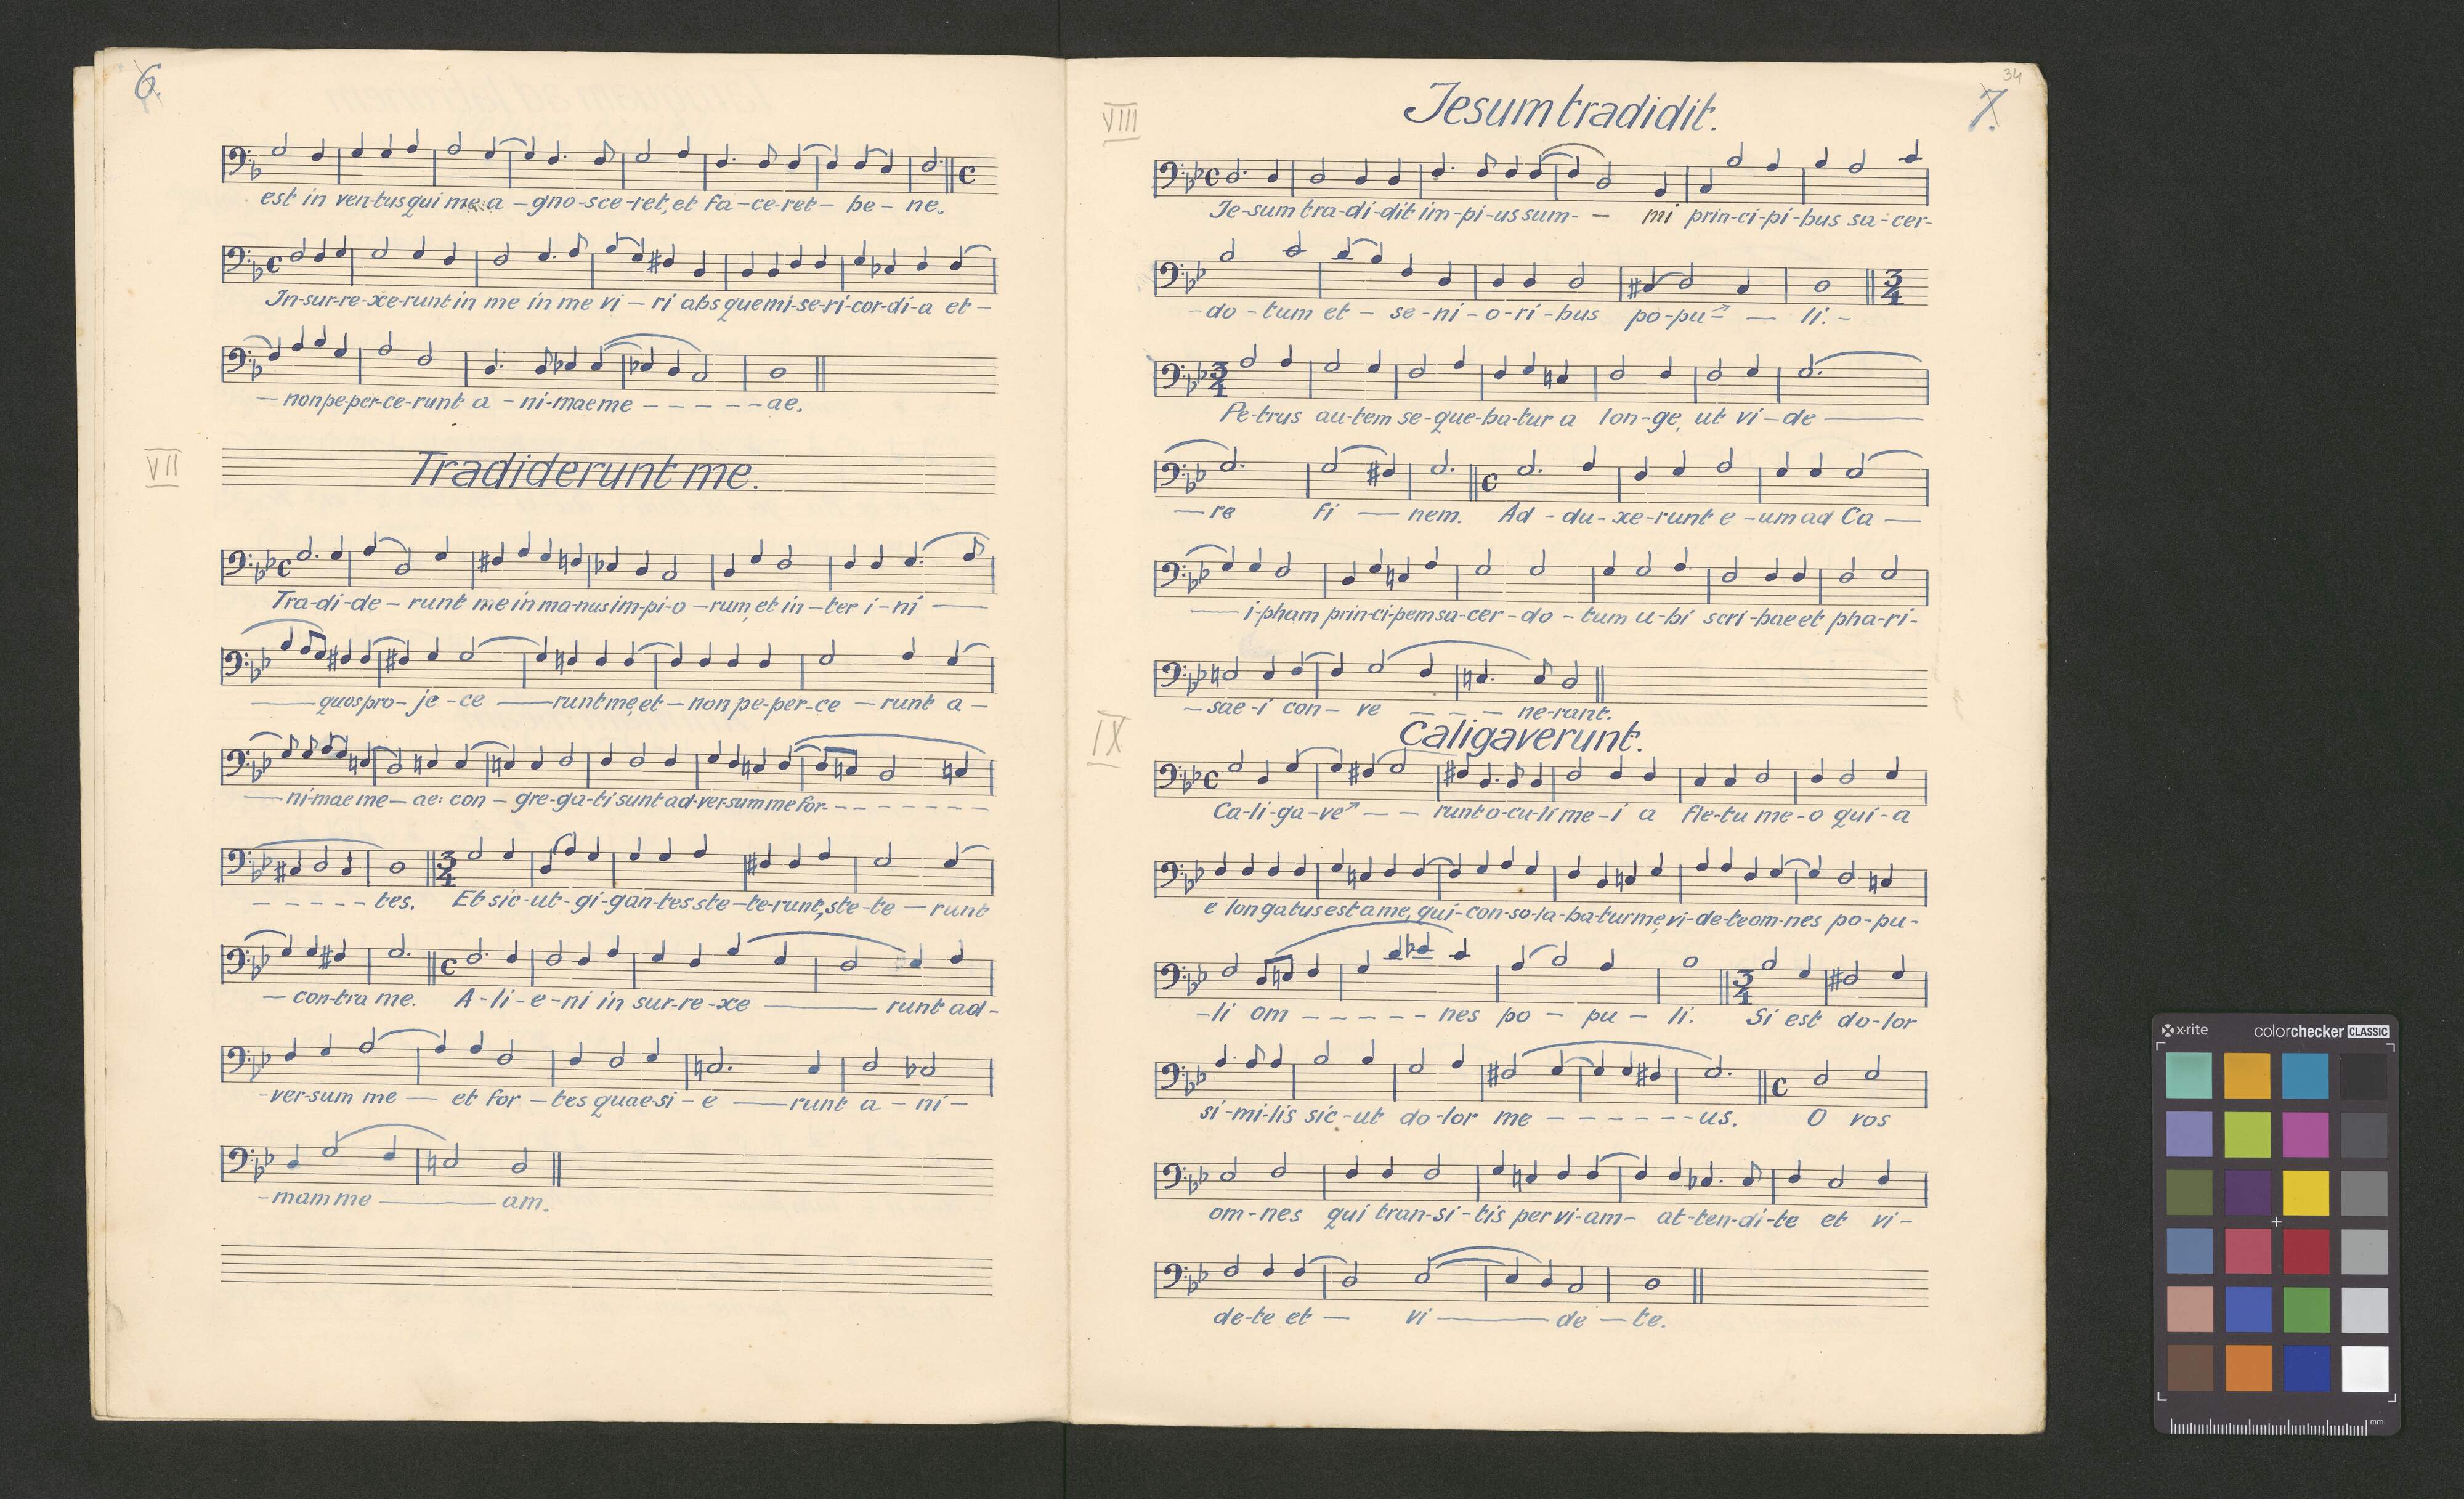 6.
est in ven-tus qui me a -gno-sce-ret, et fa-ce-ret- be- ne.
In-sur-re-xe-runt in me in me vi-ri abs que mi-se-ri-cor-di-a et-
- non pe-per-ce-runt a -ni-mae me - - - - - ae.
VII
Tradiderunt me.
Tra-di-de-runt me in ma-nus im-pi-o-rum, et in-ter i-ni —
— quos pro-je-ce — runt me, et-non pe-per-ce-runt a-
— ni-mae me- ae: con-gre-ga-ti sunt ad-ver-sum me for- - - - - - - -
- - - - - tes. Et sic-ut-gi-gan-tes ste-te-runt, ste-te-runt
- con-tra me. A-li-e-ni in sur-re-xe — runt ad-
-ver-sum me — et for-tes quae-si-e — runt a-ni-
-mam me — am.
34
7.
VIII
Jesum tradidit.
Je-sum tra-di-dit im-pi-us sum- - mi prin-ci-pi-bus sa-cer-
-do-tum et- se-ni-o-ri-bus po-pu- — li. -
3/4
Pe-trus au-tem se-que-ba-tur a lon-ge, ut vi-de —
— re fi — nem. Ad-du-xe-runt e-um ad Ca —
— i-pham prin-ci-pem sa-cer-do-tum u-bi scri-bae et pha-ri-
-sae-i con- ve - - - ne-rant.
IX
Caligaverunt.
Ca-li-ga-ve - - runt o-cu-li me-i a fle-tu me-o qui-a
e longatus est a me, qui-con-so-la-ba-tur me, vi-de-te om-nes po-pu-
-li om - - - - - nes po - pu - li. Si est do-lor
si-mi-lis sic-ut do-lor me - - - - - - us. O vos
om-nes qui tran-si-tis per vi-am- at-ten-di-te et vi-
de-te et — vi — de - te.
x-rite colorchecker CLASSIC
mm